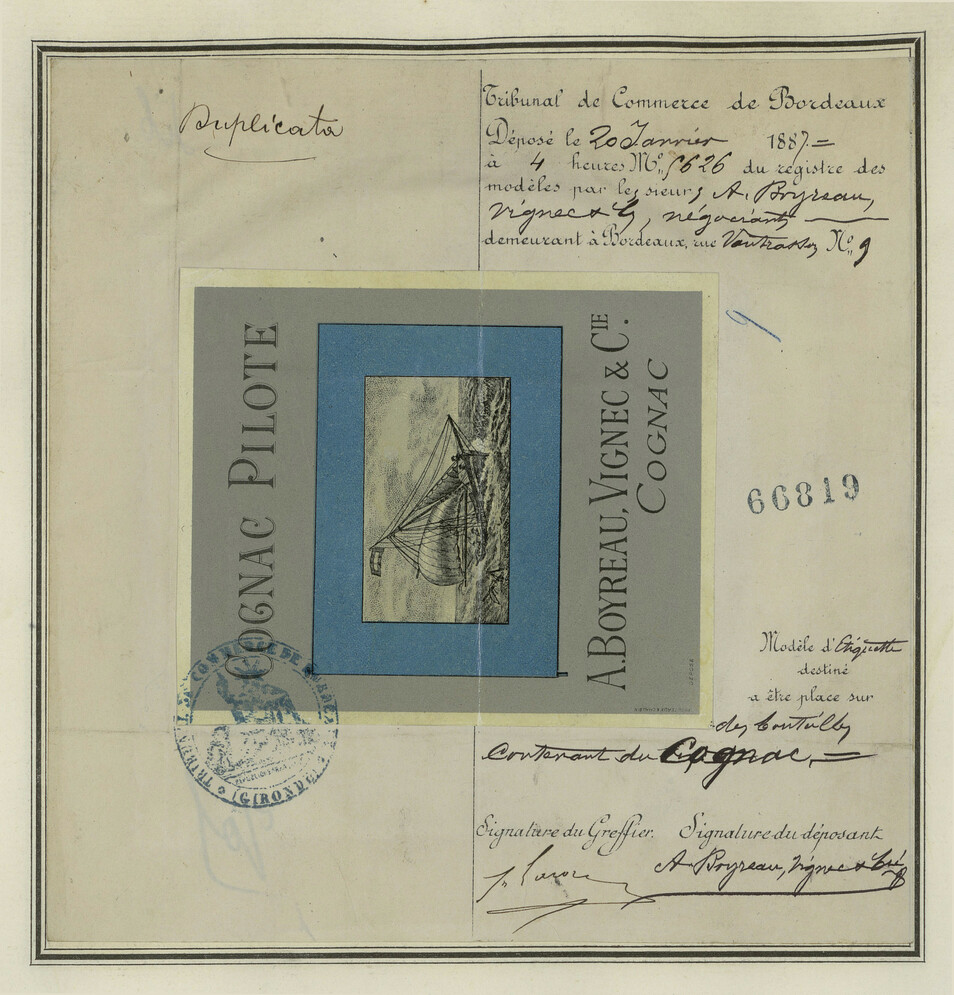 Duplicata
Tribunal de Commerce de Bordeaux
Déposé le 20 Janvier 1887
à 4 heures No 5626 du registre des
modèles par les sieurs A. Boyreau,
Vignec & Cie, négociants
demeurant à Bordeaux, rue No 9
9
COGNAC PILOTE
A. BOYREAU, VIGNEC & CIE.
COGNAC
66819
Modèle d'Etiquette
destiné
a être place sur
des bouteilles
contenant du Cognac.
TRIBUNAL DE COMMERCE DE BORDEAUX
(GIRONDE)
Signature du Greffier. Signature du déposant
A. Boyreau, Vignec & Cie